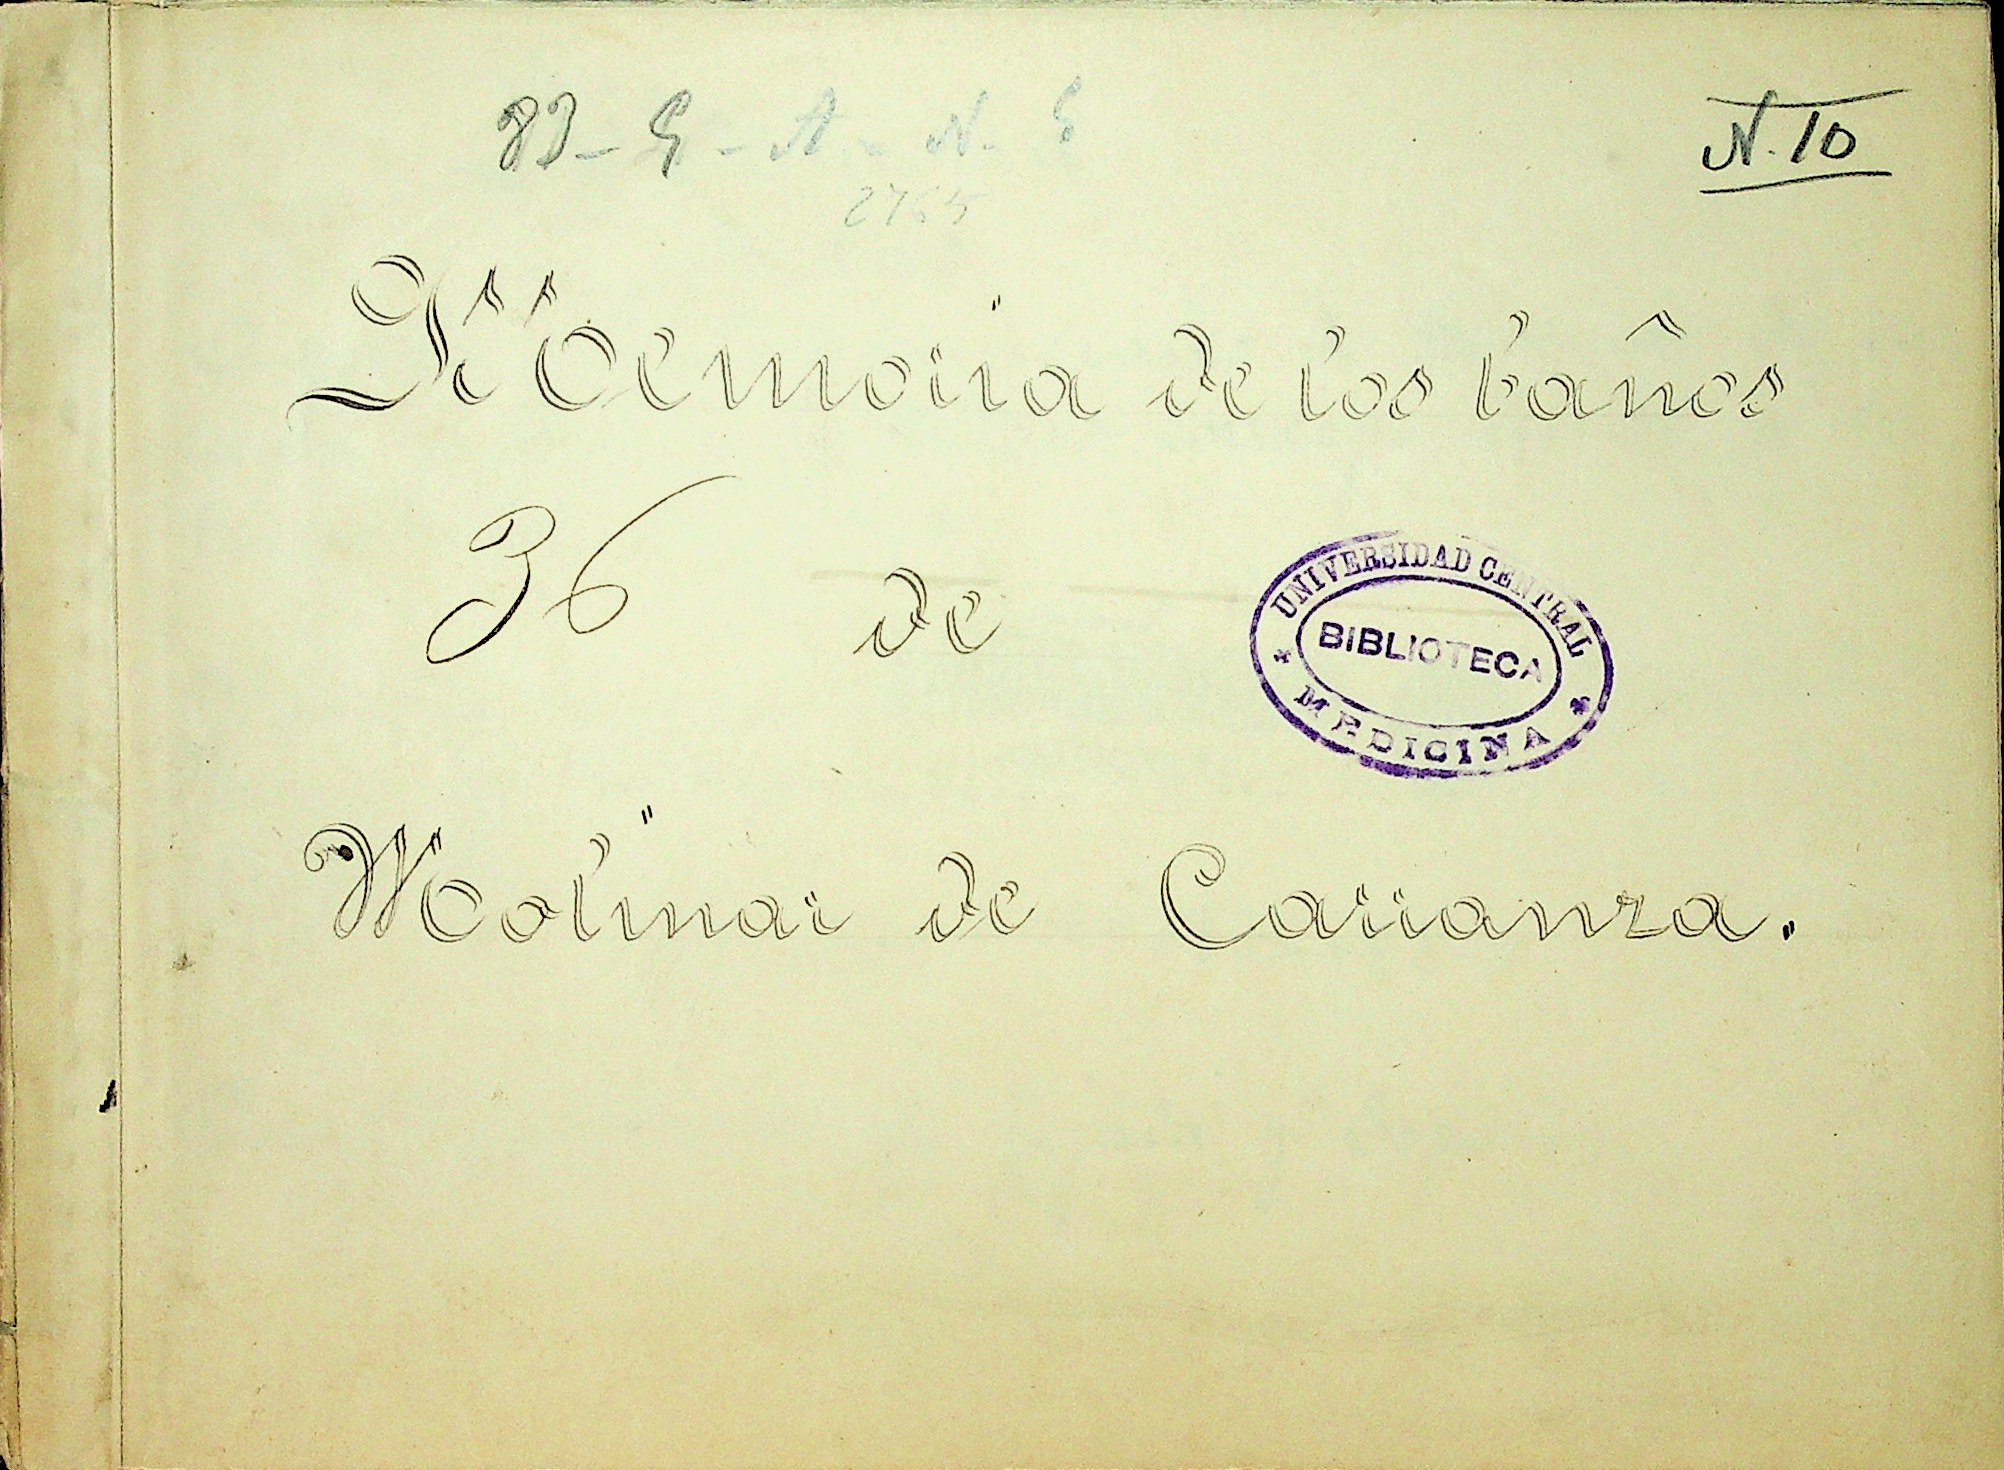 N. 10
2765
Memoria de los baños
36 de
UNIVERSIDAD CENTRAL
BIBLIOTECA
MEDICINA
Molinar de Carranza.